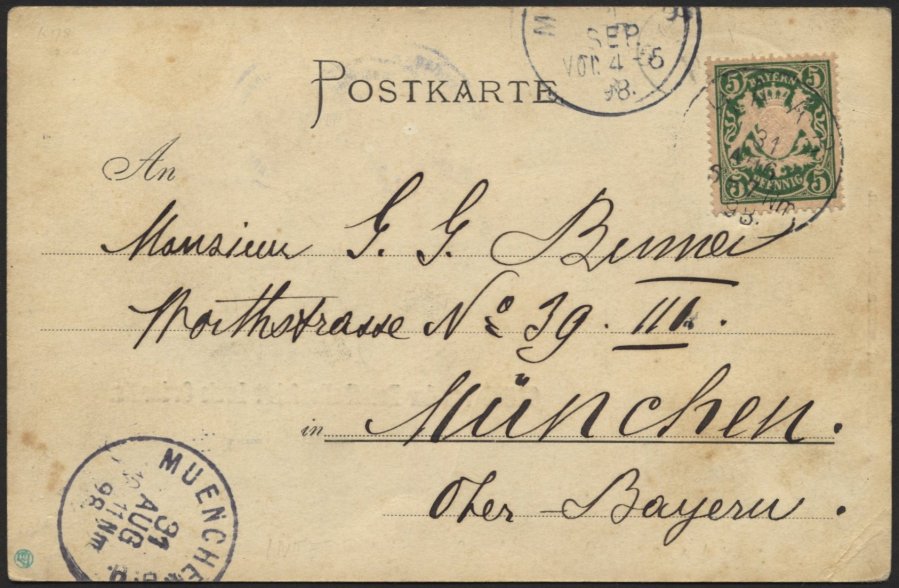 M
SEP.
VOR. 4-5
98.
POSTKARTE
5 BAYERN 5
5 PFENNIG 5
31
98.
An
Monsieur G. G.
Worthstrasse No 39. III.
in München.
Ober-Bayern.
MUENCHEN
31
AUG
11 Nm
98